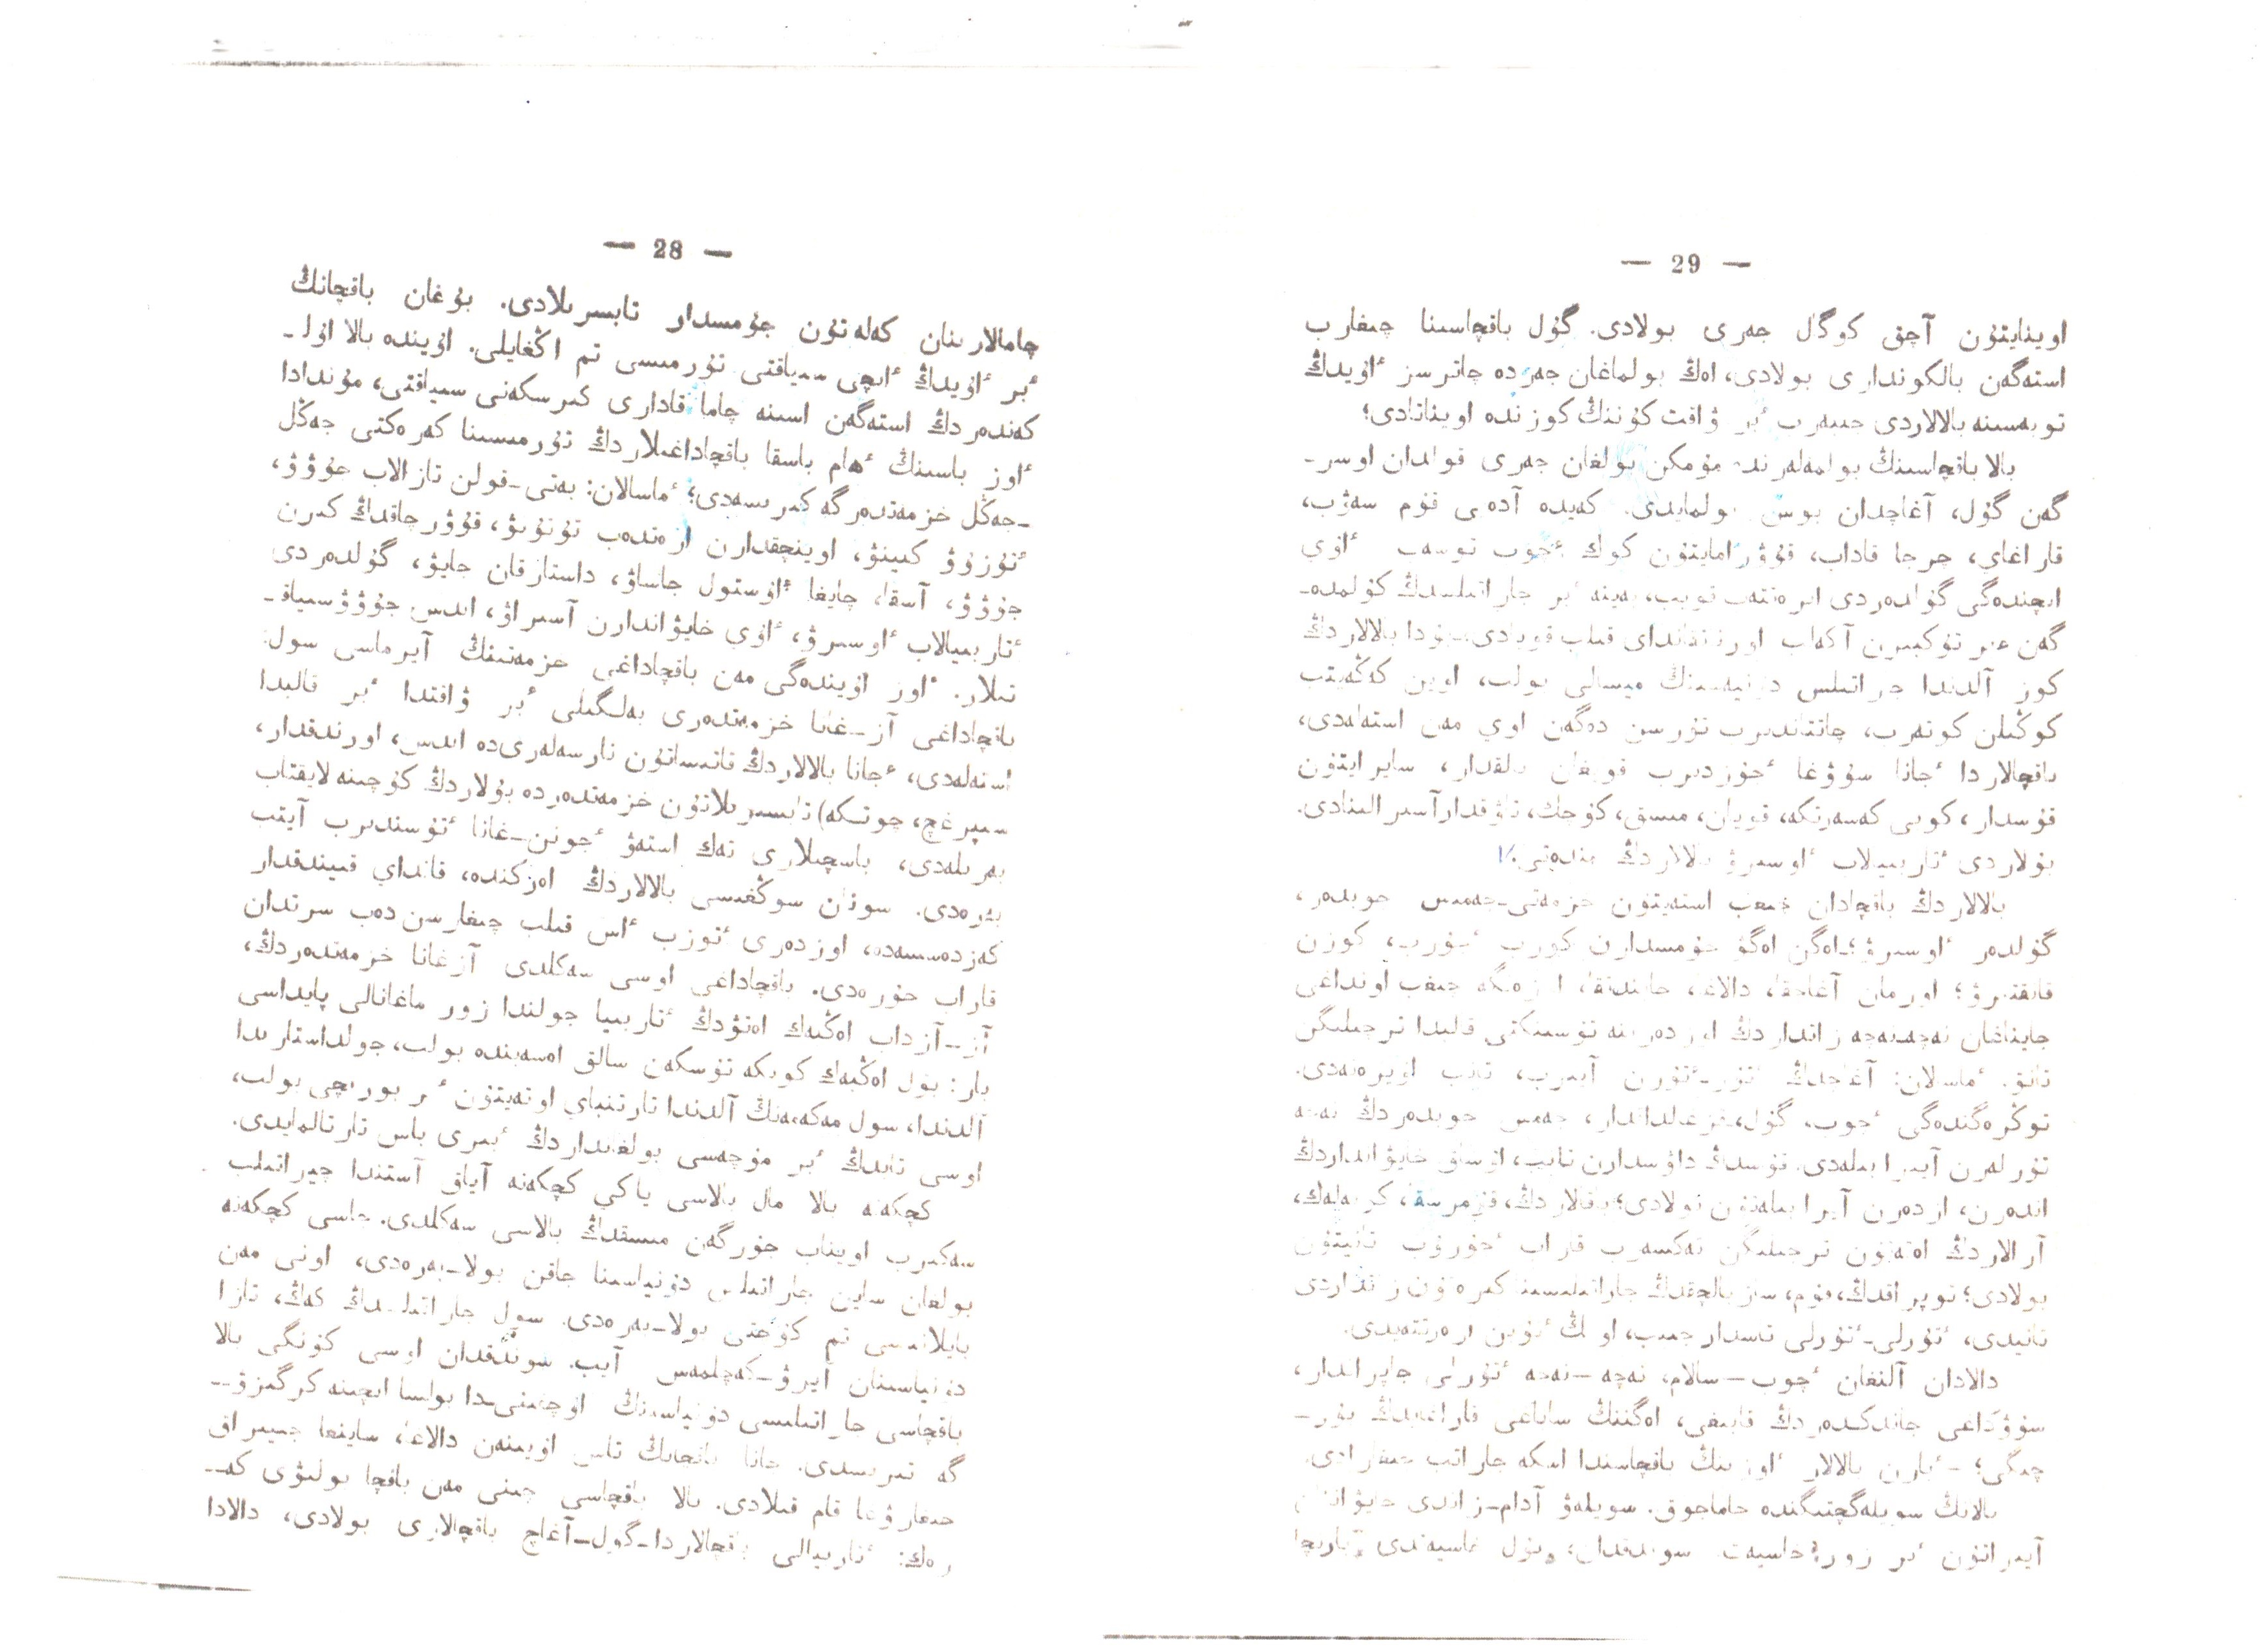 — 28 —
چامالارىنان كەلەتۇن جۇمىسدار تابىسرىلادى. بۇغان باقچانىڭ
ٴبر ٴاۇيدىڭ ٴاىچى سىياقتى تۇرمىسى تم اڭغايلى. اۇيىندە بالا اۇلـ
كەندەردىڭ استەگەن اسىنە چاما قادارى كىرسكەنى سىياقتى، مۇندادا
ٴاوز باسىنىڭ ٴھام باسقا باقچاداغىلاردىڭ تۇرمىسىنا كەرەكتى جەڭل
ـجەڭل خزمەتدەرگە كىرىسەدى؛ ٴماسالان: بەتى-قولن تازالاب جۇۋۋ،
ٴتۇزۇۋ كىينۋ، اوينچقدارن ازەندەب تۇتۇنۋ، قۇۋرچاقدىڭ كىرن
جۇۋۋ، آسقا، چايغا ٴاۇستول جاساۋ، داستارقان جايۋ، گۇلدەردى
ٴتاربىيالاب ٴاوسىرۋ، ٴاۇي خايۋاندارن آسىراۋ، ادىس جۇۋۋسىياقـ
تىلار. ٴاوز اۇيىندەگى مەن باقچاداغى خزمەتىنىڭ آيرماسى سول:
باقچاداغى آز-غانا خزمەتدەرى بەلگىلى ٴبر ۋاقتدا ٴبر قالىبدا
استەلەدى، ٴجانا بالالاردىڭ قاتىساتۇن نارسەلەرىدە ادىس، اورندقدار،
سىپرغىچ، چوتكە) تابىسىرىلاتۇن خزمەتدەردە بۇلاردىڭ كۇچىنە لايقتاب
بەرىلەدى، باسچىلارى تەك استەۋ ٴجونن-غانا ٴتۇسىندىرىب آيتىب
بەرەدى. سونان سوڭغىسى بالالاردىڭ اەزكىندە، قانداي قىيىندقدار
كەزدەسسەدە، اوزدەرى ٴتوزب ٴاس قىلب چىغارسن دەب سرتدان
قاراب جۇرەدى. باقچاداغى اوسى سەكلدى آزغانا خزمەتدەردىڭ،
آز-آزداب اەڭبەك اەتۇدىڭ ٴتاربىيا جولىندا زور ماغانالى پايداسى
بار: بۇل اەڭبەك كوپكە تۇسكەن سالق اەسەبىندە بولب، جولداستارىدا
آلدىندا، سول مەكەمەنىڭ آلدىندا تارتنباي اوتەيتۇن ٴبر بورىچى بولب،
اوسى تابدىڭ ٴبر مۇچەسى بولغانداردىڭ ٴبىرى باس تارتالمايدى.
كچكەنە بالا مال بالاسى ياكي كچكەنە آياق آستىندا چىراتىلب
سەكىرب اويناب جۇرگەن مىسقدىڭ بالاسى سەكلدى. جاسى كچكەنە
بولغان ساين جاراتىلس دۇنياسىنا جاقن بولا-بەرەدى، اونى مەن
بايلانىسى تم كۇچتى بولا-بەرەدى. سول جاراتىلسدىڭ كەڭ، تازا
دۇنياسىنان آيرۋ-كەچلمەس آيب. سوندقدان اوسى كۇنگى بالا
باقچاسى جاراتىلىسى دۇنياسىنىڭ
گە تىرىسدى. جانا باقچانىڭ تاس اۇيىنەن دالاعا، ساينعا جىيىراق
چىغارۋعا قام قىلادى. بالا باقچاسى چىنى مەن باقچا بولىۋى كەـ
رەك: ٴتاربىيالى باقچالاردا-گول-آغاچ باقچالارى بولادى، دالادا
— 29 —
اوينايتۇن آچق كوگال جەرى بولادى. گۇل باقچاسىنا چىغارب
استەگەن بالكوندارى بولادى، اەڭ بولماغان جەردە چاترسز ٴاۇيدىڭ
توبەسىنە بالالاردى جىبەرىب ٴبر ۋاقت كۇننىڭ كوزندە اويناتادى؛
بالا باقچاسىنىڭ بولمەلەرندە مۇمكن بولغان جەرى قولدان اوسرـ
گەن گۇل، آغاچدان بوس بولمايدى. كەيدە آدەيى قۇم سەۋب،
قاراغاي، چرچا قاداب، قۇۋرامايتۇن كوك ٴچوب توسەب ٴاۇي
اىچندەگى گۇلدەردى اىرەتتەب تويب، بەينە ٴبر جاراتىلسدىڭ كۇلمدەـ
گەن ٴبر تۇكىپىرن آكەلب اورناتقانداي قىلب قويادى. بۇدا بالالاردىڭ
كوز آلدىندا جراتىلس دۇنيەسىنىڭ ميسالى بولب، اوين كەڭەيتب
كوڭىلن كوتەرب، چاتتاندىرب تۇرسن دەگەن اوي مەن استەلەدى،
باقچالاردا ٴجانا سۇۋغا ٴجۇزدىرب قويغان بالقدار، سايرايتۇن
قۇسدار، كوبى كەسەرتكە، قويان، مىسق، كۇچك، تاۋقدارآسىرالىنادى.
بۇلاردى ٴتاربىيالاب ٴاوسىرۋ بالالاردىڭ مندەتى.
بالالاردىڭ باقچادان چىعب استەيتۇن خزمەتى-جەمىس جويدەر،
گۇلدەر ٴاوسىرۋ؛ـاەگن اەگۋ جۇمىسدارن كورب ٴجۇرب، كوزن
قانقتىرۋ؛ اورمان آغاچقا، دالاعا، جاىندىققا، اوزەنگە چىعب اونداغى
جايناغان نەچە-نەچە زاتداردىڭ اوزدەرىنە تۇسىنىكتى قالىبدا ترچىلىگن
تانۋ. ٴماسالان: آغاچدىڭ ٴتۇر-ٴتۇرن آيىرب، تانىب اۇيرەنەدى.
توڭرەگندەگى ٴچوب، گۇل، قىزعالداقدار، جەمىس جويدەردىڭ نەچە
تۇرلەرن آيىرا بىلەدى. قۇسدىڭ داۋسدارن تانىب، اۇساق خايۋانداردىڭ
اندەرن، ازدەرن آيرا بىلەتۇن بولادى؛ باقالاردىڭ، قۇمرسقا، كوبەلەك،
آرالاردىڭ اەتەتۇن ترچىلىگن تەكسەرب قاراب ٴجۇرۇب تانيتۇن
بولادى؛ توپراقدىڭ، قۇم، ساز بالچقدىڭ جاراتىلسىنا كىرەتۇن زاتداردى
تانيدى، ٴتۇرلى-ٴتۇرلى تاسدار جىيب، اونىڭ ٴتۇين ارەتتەيدى.
دالادان آلنغان ٴچوب — سالام، نەچە — نەچە ٴتۇرلى جاپراقدار،
سۇۋداغى جاندىكدەردىڭ قابىغى، اەگننىڭ ساباعى قاراغايدىڭ بۇرـ
چىگى؛ -ٴبارن بالالار ٴاوزىنىڭ باقچاسىندا اسكە جاراتب چىغارادى.
بالانىڭ سويلەگچتىگندە جاماجوق. سويلەۋ آدام-زاتدى خايۋاننان
آيىراتۇن ٴبر زور خاسيەت. سوندقدان، بۇل خاسيەتدى بارىنچا